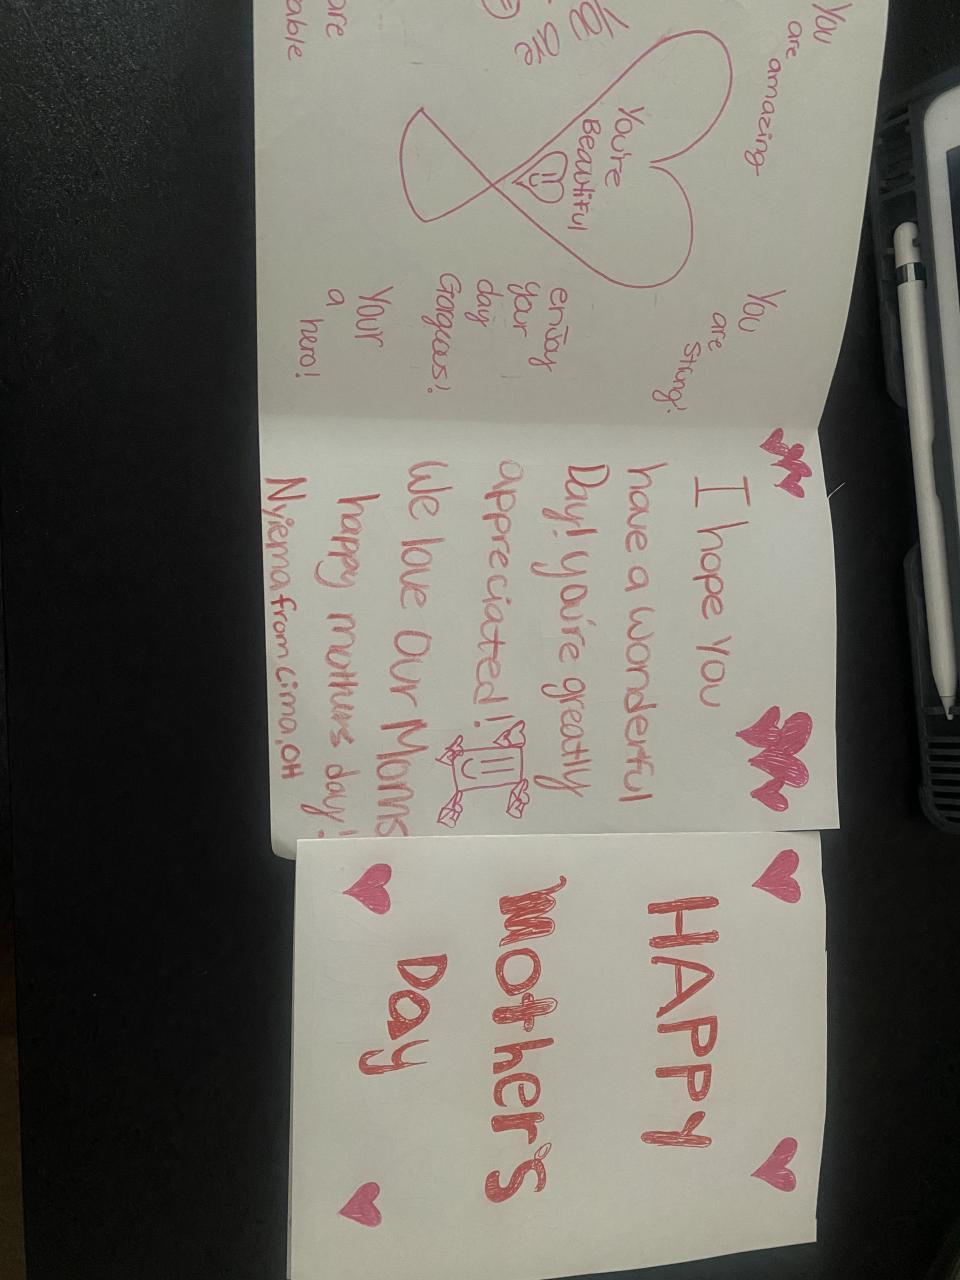 You
are
amazing
You're
Beautiful
You
are
Strong!
enjoy
your
day
Gorgeous!
Your
a
hero!
are
able
I hope You
have a wonderful
Day! you're greatly
appreciated!
We love Our Moms
happy muthers day!
Nyiema from Lima, OH
HAPPY
Mother's
Day